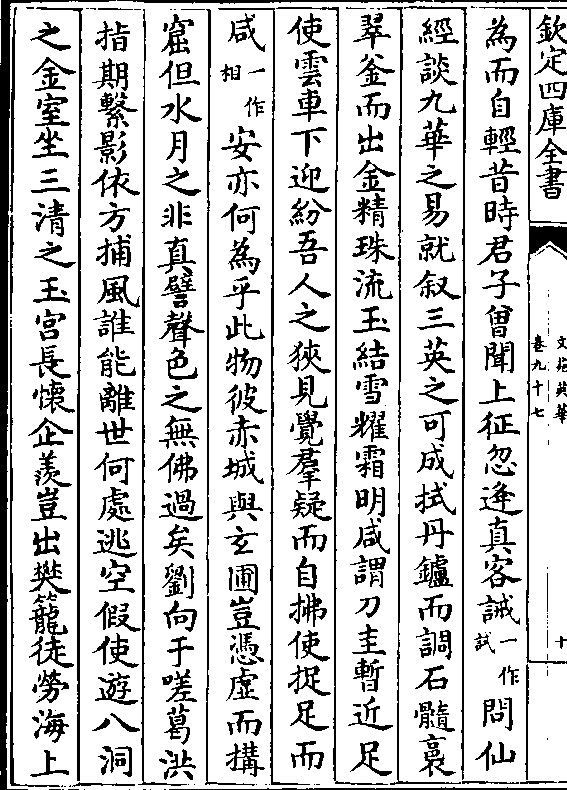 欽定四庫全書
文苑英華
卷九十七
十
為而自輕昔時君子曾聞上征忽逢真客誠一作試問仙
經談九華之易就叙三英之可成拭丹鑪而調石髓裹
翠釜而出金精珠流玉結雪耀霜明咸謂刀圭暫近足
使雲車下迎紛吾人之狹見覺羣疑而自拂使捉足而
咸一作相安亦何為乎此物彼赤城與玄圃豈憑虛而搆
窟但水月之非真譬聲色之無佛過矣劉向于嗟葛洪
指期繫影依方捕風誰能離世何處逃空假使遊八洞
之金室坐三清之玉宮長懷企羨豈出樊籠徒勞海上